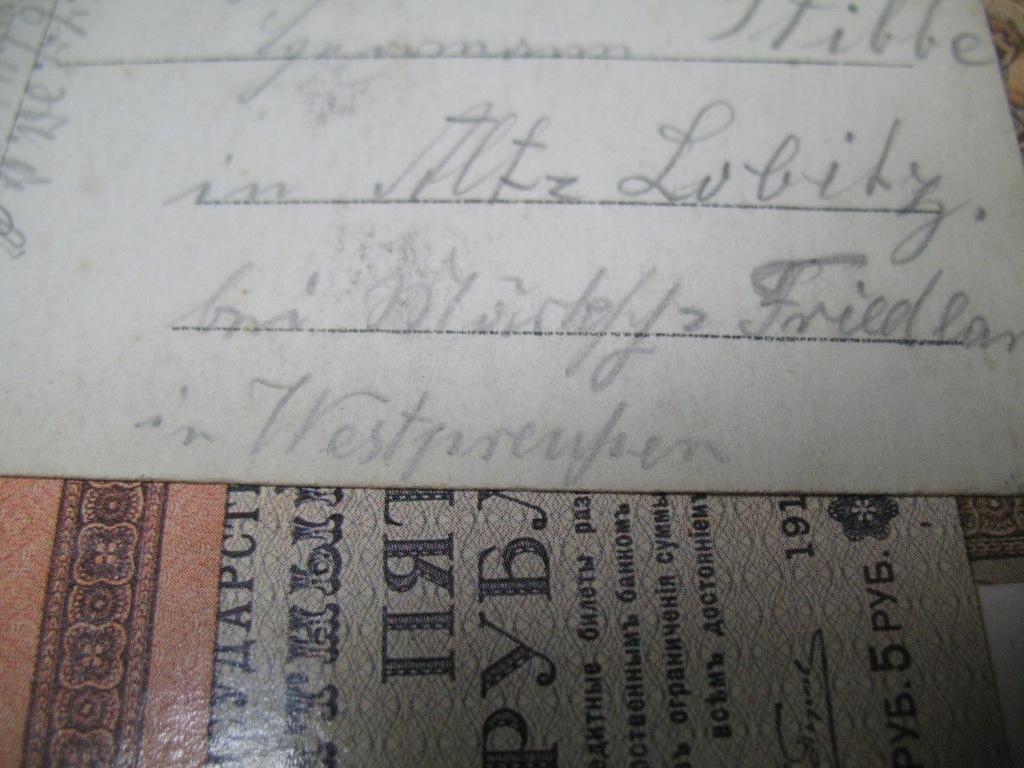 Hermann Stibbe
in Alt= Lobitz.
bei Märkisch= Friedlan
in Westpreußen
УДАРСТ
ПЯТ
РУБЛ
едитные билеты раз
ственнымъ банкомъ
ъ ограниченія суммы
всѣмъ достояніемъ
191
РУБ. 5 РУБ.